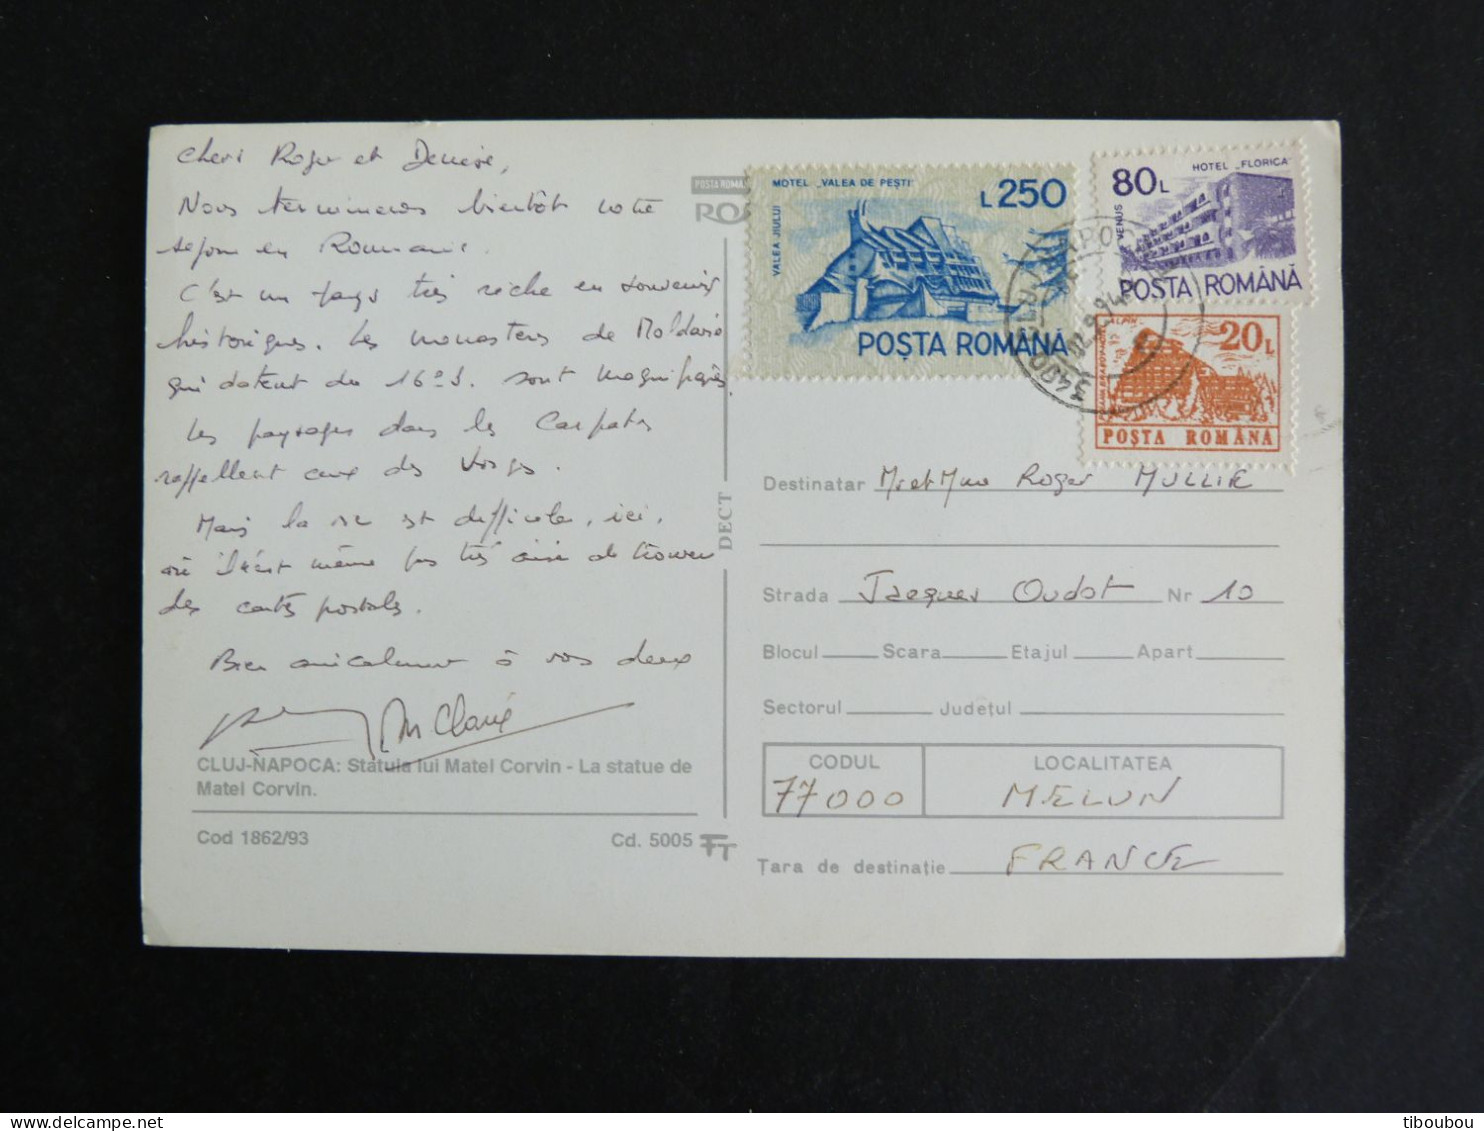 Chers Roger et Denise,
Nous terminerons bientôt notre
séjour en Roumanie.
C'est un pays très riche en souvenirs
historiques. Les monastères de Moldavie
qui datent du 16e S. sont magnifiques.
Les paysages dans les Carpates
rappellent ceux des Vosges.
Mais la vie est difficile, ici,
où il n'est même pas très aisé de trouver
des cartes postales.
Bien amicalement à vos deux
M Claire
CLUJ-NAPOCA: Statuia lui Matei Corvin - La statue de
Matei Corvin.
Cod 1862/93
Cd. 5005
DECT
POSTA ROMA
RO
MOTEL „VALEA DE PEŞTI"
L250
VALEA JIULUI
POŞTA ROMÂNĂ
HOTEL „FLORICA"
80L
VENUS
POSTA ROMÂNĂ
20L
POŞTA ROMÂNA
3400
02.9.94
Destinatar Mr et Mme Roger MULLIE
Strada Jacques Oudot Nr 10
Blocul Scara Etajul Apart
Sectorul Judeţul
CODUL LOCALITATEA
77000 MELUN
Ţara de destinaţie FRANCE
tiboubou